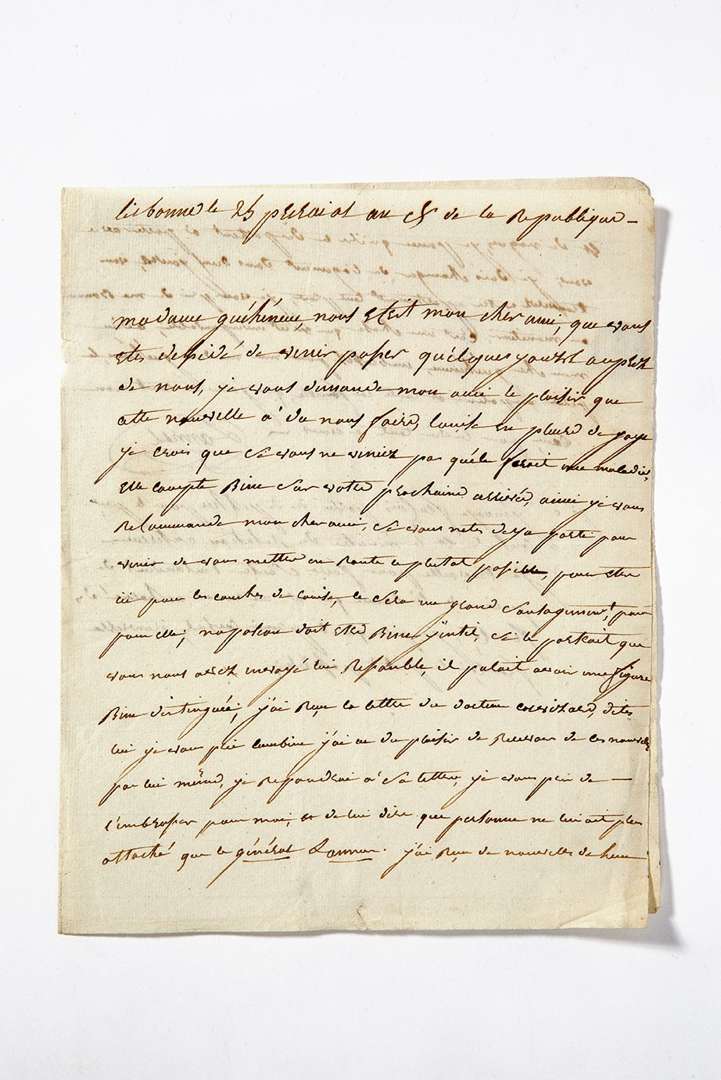 Lisbonne le 25 prerial an de la Republique —
madame guéhéneuc, nous ecrit mon cher ami, que vous
etes desidé de venir passer quelques jours aupres
de nous, je vous demande mon ami le plaisir que
cette nouvelle a du nous faire, louise en pleure de joye
je crois que se vous ne veniez pas quele ferait une maladie,
elle compte Bien sur votre prochaine arrivé, ainsi je vous
Recommande mon cher ami, se vous netes deja parti pour
venir de vous mettre en Route a plutot posible, pour etre
ici pour les couches de louise, ce sera un grand soulagement, pour
pour elle, napoleon doit etre Bien gentil, se le portrait que
vous nous avez envoyé lui Resemble, il parait avoir une figure
Bien distinguée, j'ai Reçu la lettre du docteur dites
lui je vous prie combien j'ai eu du plaisir de Recevoir de ces nouvelles
par lui même, je Repondrai a sa lettre, je vous prie de —
l'embrasser pour moi, et de lui dire que personne ne lui ait plus
attaché que le général Lannes. j'ai Reçu de nouvelles de